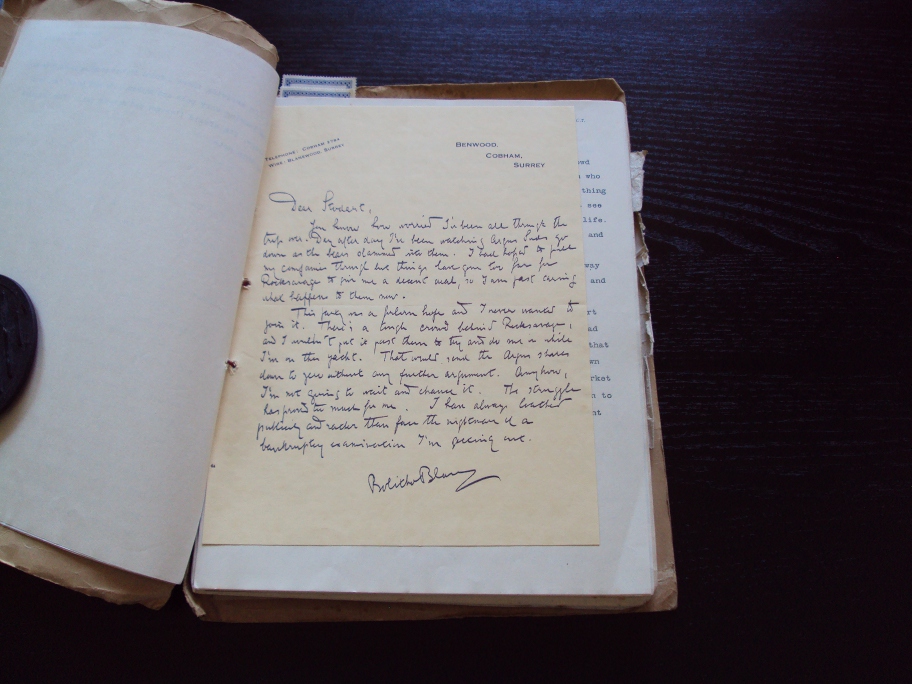 TELEPHONE: COBHAM
WIRE: BLANEWOOD, SURREY
BENWOOD,
COBHAM,
SURREY
Dear Stodart,
You know how worried I've been all through the
trip over. Day after day I've been watching Argus Suds go
down as the bears clamoured over them. I had hoped to pull
my companies through but things have gone too far for
Rocksavage to give me a decent deal, so I am past caring
what happens to them now.
This party was a forlorn hope and I never wanted to
join it. There's a tough crowd behind Rocksavage,
and I wouldn't put it past them to try and do me in while
I'm on the yacht. That would send the Argus shares
down to zero without any further argument. Anyhow,
I'm not going to wait and chance it. The struggle
has proved too much for me. I have always loathed
publicity and rather than face the nightmare of a
bankruptcy examination I'm getting out.
Bolitho Blane
who
thing
see
life.
and
way
and
that
to